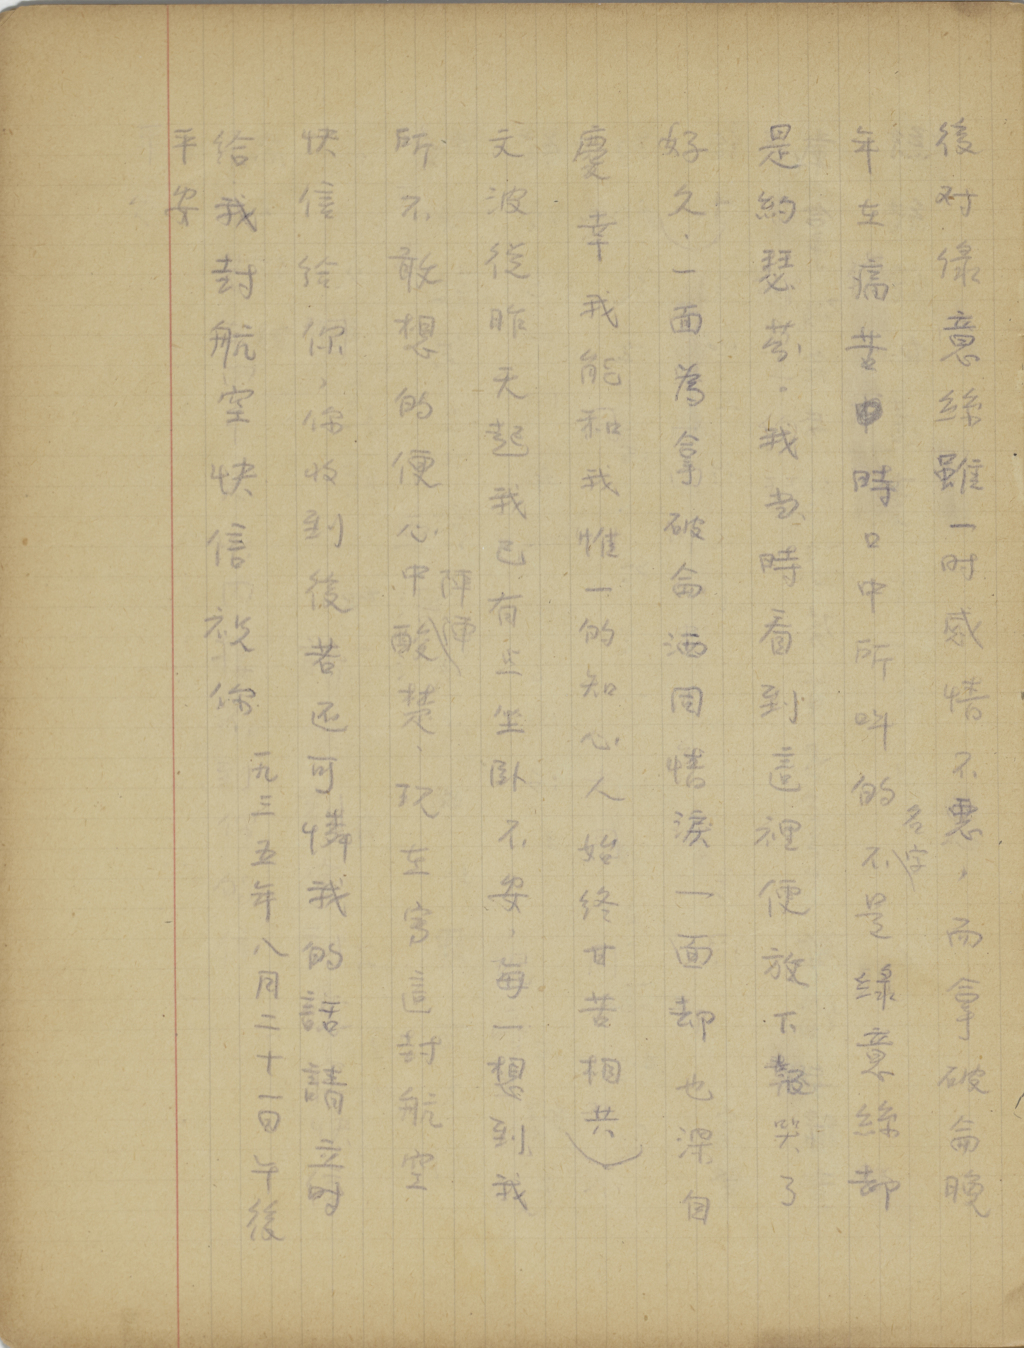 後对綠意絲雖一时感情不悪，而拿破侖晚
年在痛苦中時口中所叫的名字不是綠意絲却
是約瑟芬。我当時看到這裡便放下報哭了
好久，一面為拿破侖洒同情淚一面却也深自
慶幸我能和我惟一的知心人始終甘苦相共）
文波從昨天起我已有点坐卧不安，每一想到我
所不敢想的便心中陣陣酸楚，现在寄這封航空
快信给你，你收到後若还可憐我的話請立时
给我封航空快信 祝你
平安
一九三五年八月二十一日午後